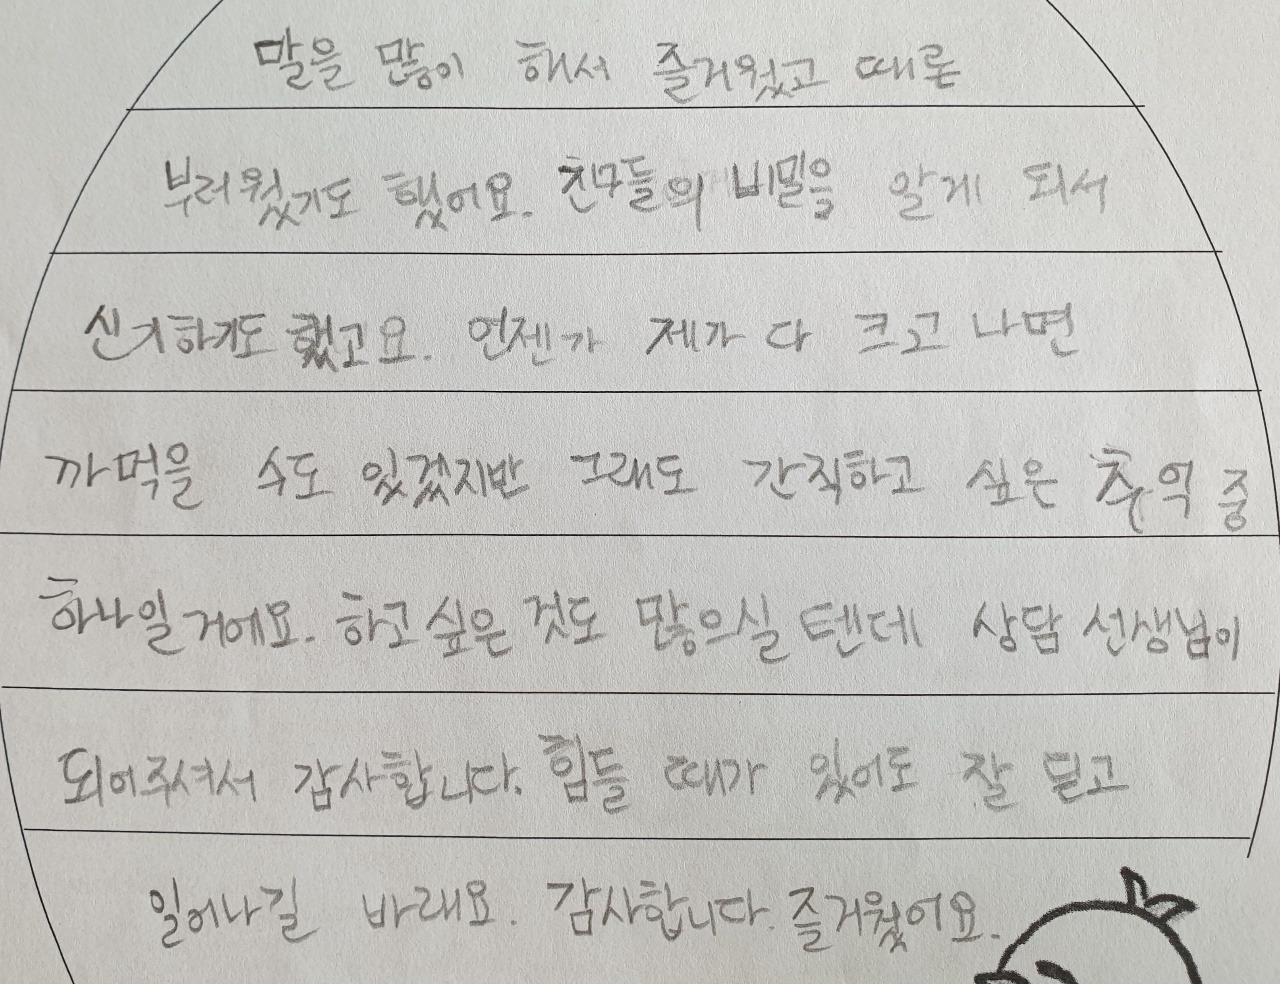 말을 많이 해서 즐거웠고 때론
부러웠기도 했어요. 친구들의 비밀을 알게 되서
신기하기도 했고요. 언젠가 제가 다 크고 나면
까먹을 수도 있겠지만 그래도 간직하고 싶은 추억 중
하나일 거에요. 하고 싶은 것도 많으실 텐데 상담 선생님이
되어주셔서 감사합니다. 힘들 때가 있어도 잘 딛고
일어나길 바래요. 감사합니다. 즐거웠어요.